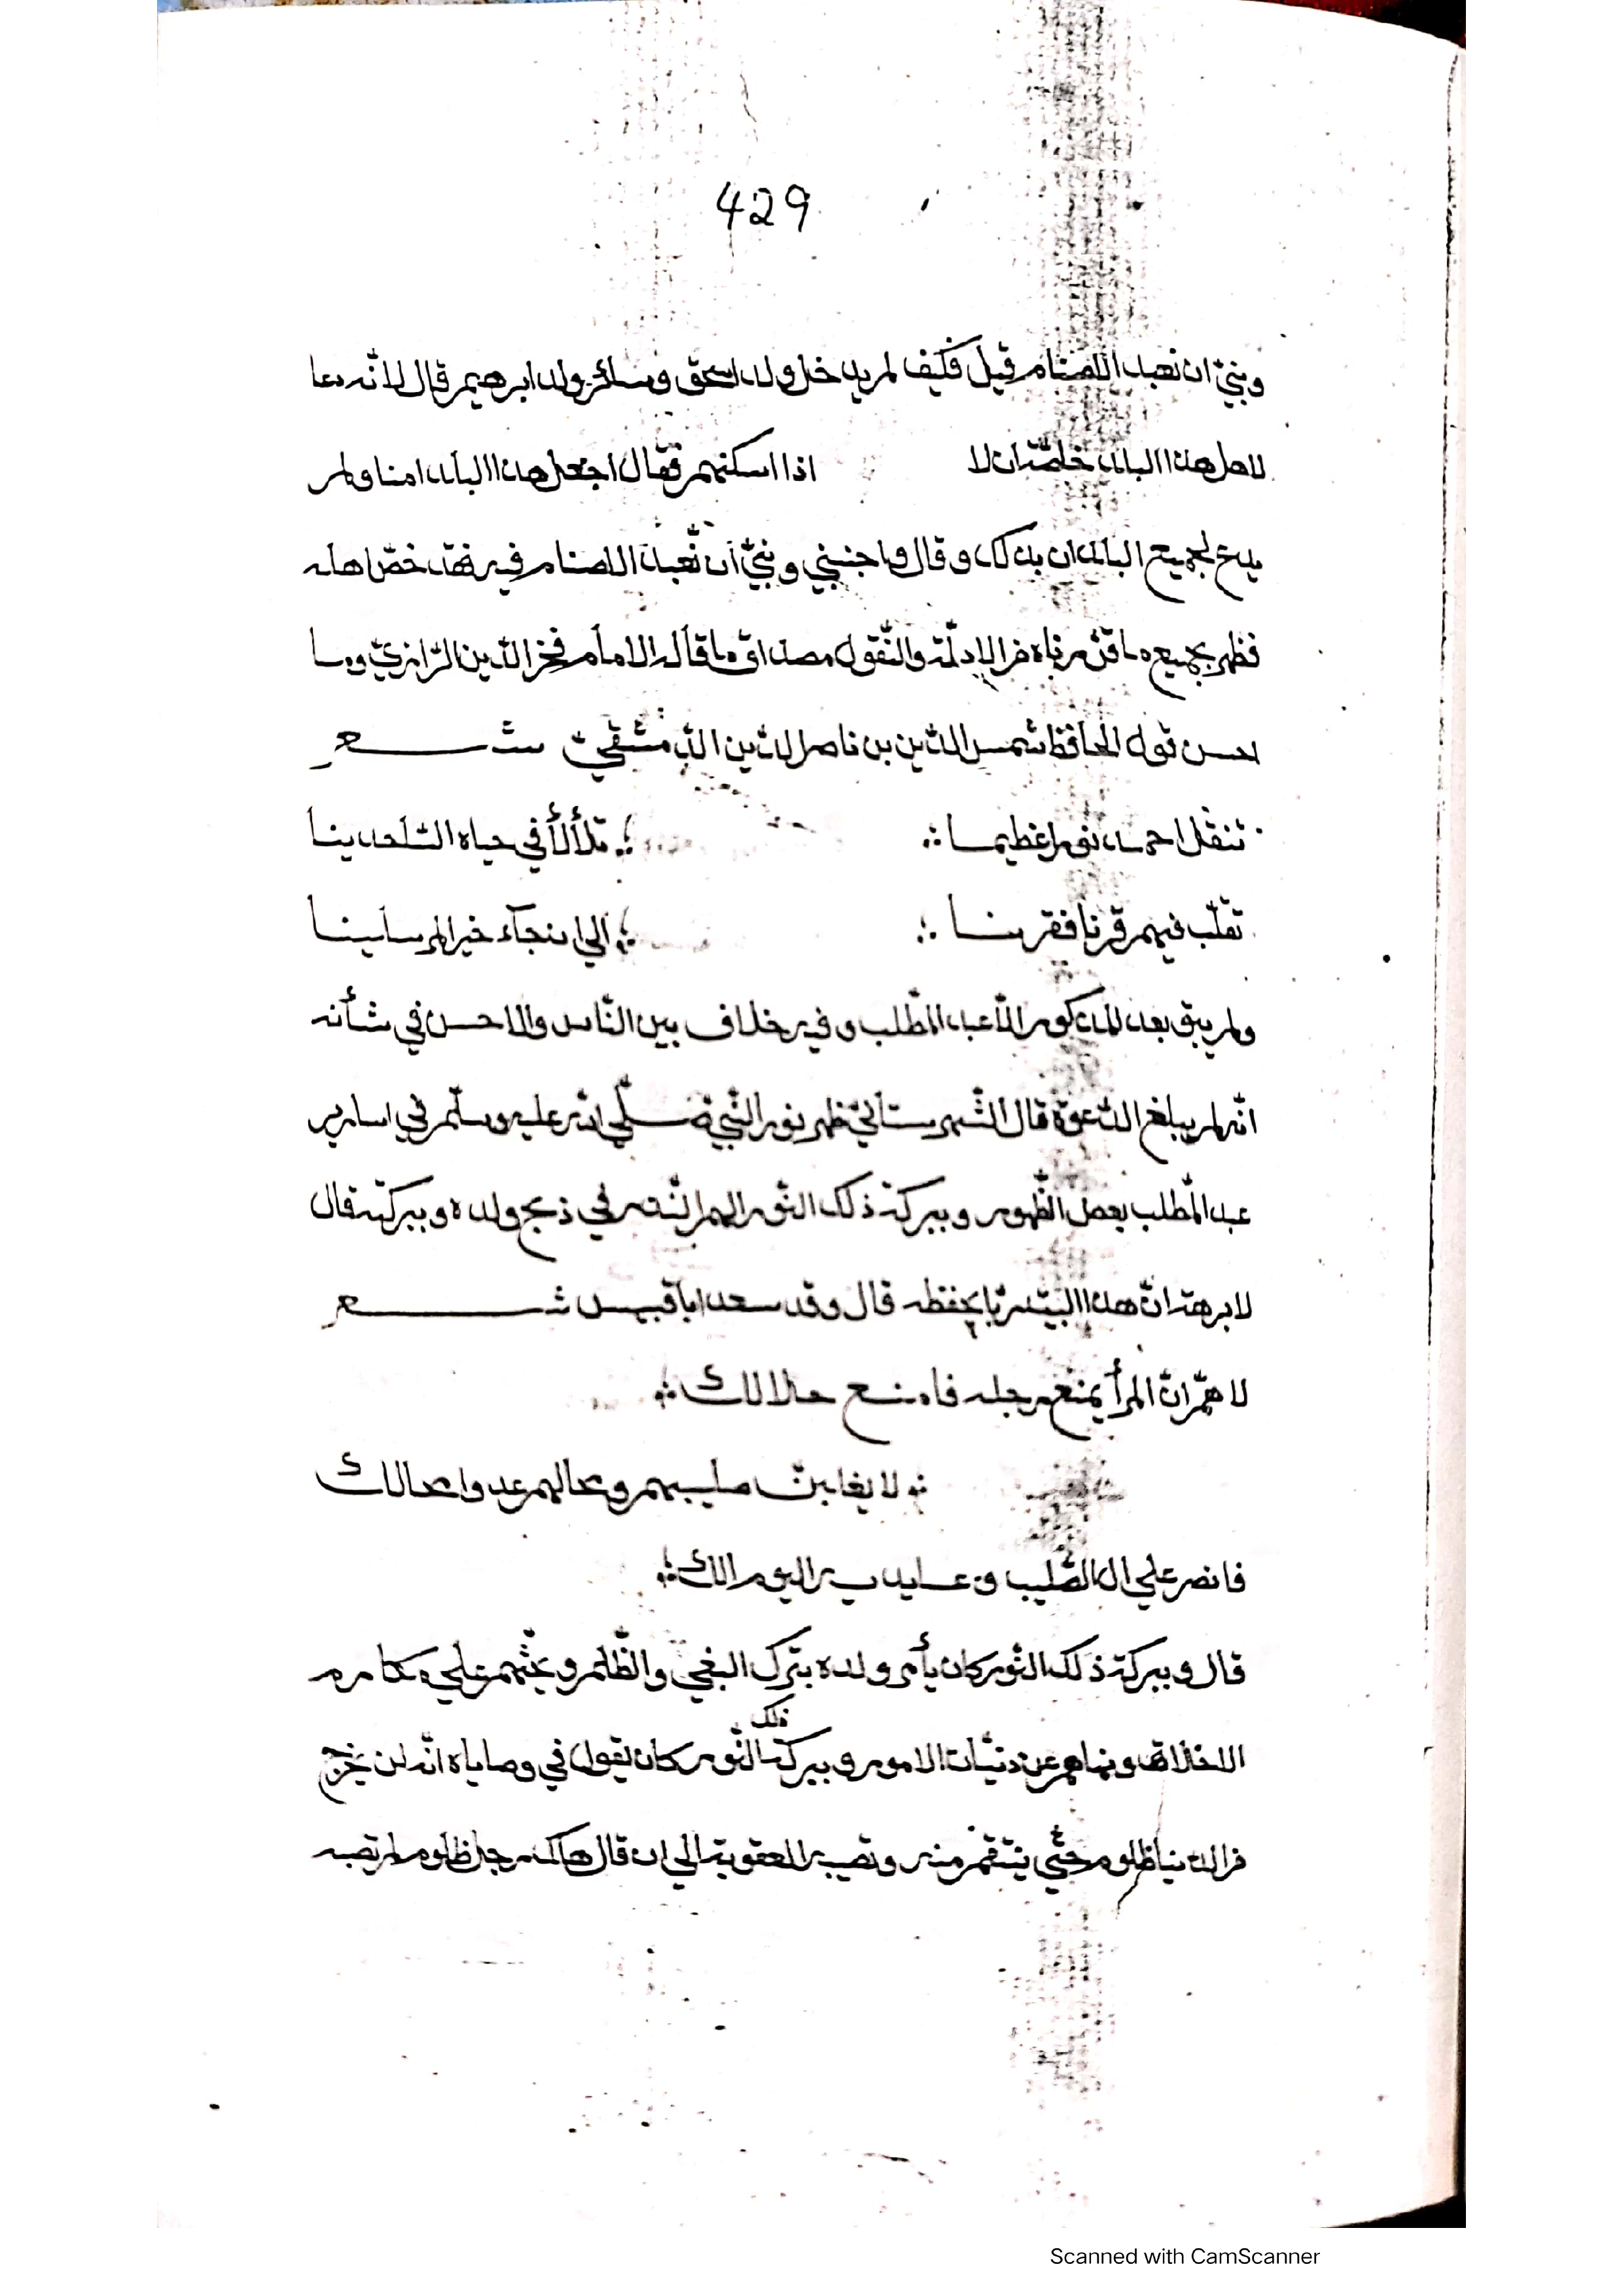 429
وبنيّ ان نعبد الاصنام قيل فكيف لم يدخل ولد اسحق وسائر ولد ابرهيم قال لانّه دعا
لاهل هذا البلد خاصّة ان لا اذا اسكنهم فقال اجعل هذا البلد امنا ولم
يدع لجميع البلدان بذلك وقال واجنبني وبنيّ أن نّعبد الاصنام فيه فقد خصّ اهله
فظهر بجميع ما قرّرناه من الادلّة والنّقول مصداق ما قاله الامام فخر الدّين الرّازيّ وما
احسن قول الحافظ شمس الدّين بن ناصر الدّين الدّمشقيّ شعر
تنقل احمد نورا عظيما ؞ ؞ تلألأ في جباه السّاجدينا
تقلّب فيهم قرنا فقرنا ؞ ؞ الي ان جآء خير المرسلينا
ولم يبق بعد المذكور الّا عبد المطّلب وفيه خلاف بين النّاس والاحسن في شأنه
انّه لم يبلغ الدّعوة قال الشّهرستانيّ ظهر نور النّبيّ صلّي الله عليه وسلّم في اسارير
عبد المطّلب بعض الظّهور وببركة ذلك النّور الهم النّذر في ذبح ولده وببركته قال
لابرهة انّ هذا البيت ربّا يحفظه قال وقد صعد ابا قبيس شعر
لا همّ انّ المرأ يمنع رحله فامنع حلالك ؞
؞ لا يغلبنّ صليبهم ومحالهم عدوا محالك
فانصر علي ال الصّليب وعابديه اليوم الك ؞
قال وببركة ذلك النّور كان يأمر ولده بترك البغي والظّلم ويحثّهم علي مكارم
الاخلاق ونهاهم عن دنيّات الامور وببركة ذلك النّور كان يقول في وصاياه انّه لن يخرج
من الدّنيا ظلوم حتّي ينتقم منه وتصيبه العقوبة الي ان قال هلك رجل ظلوم لم تصبه
Scanned with CamScanner